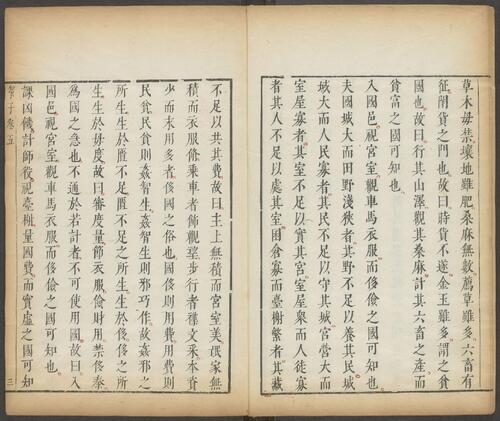 草木毋禁壤地雖肥桑麻無數薦草雖多六畜有
征閉貨之門也故曰時貨不遂金玉雖多謂之貧
國也故曰行其山澤觀其桑麻計其六畜之產而
貧富之國可知也
入國邑視宮室觀車馬衣服而侈儉之國可知也
夫國城大而田野淺狹者其野不足以養其民城
域大而人民寡者其民不足以守其城宮營大而
室屋寡者其室不足以實其宮室屋衆而人徒寡
者其人不足以處其室囷倉寡而臺榭繁者其藏
不足以共其費故曰主上無積而宮室美氓家無
積而衣服脩乘車者飾觀望步行者雜文采本資
少而末用多者侈國之俗也國侈則用費用費則
民貧民貧則姦智生姦智生則邪巧作故姦邪之
所生生於匱不足匱不足之所生生於侈侈之所
生生於毋度故曰審度量節衣服儉財用禁侈泰
爲國之急也不通於若計者不可使用國故曰入
國邑視宮室觀車馬衣服而侈儉之國可知也
課凶饑計師役視臺榭量國費而實虛之國可知
管子卷五
三